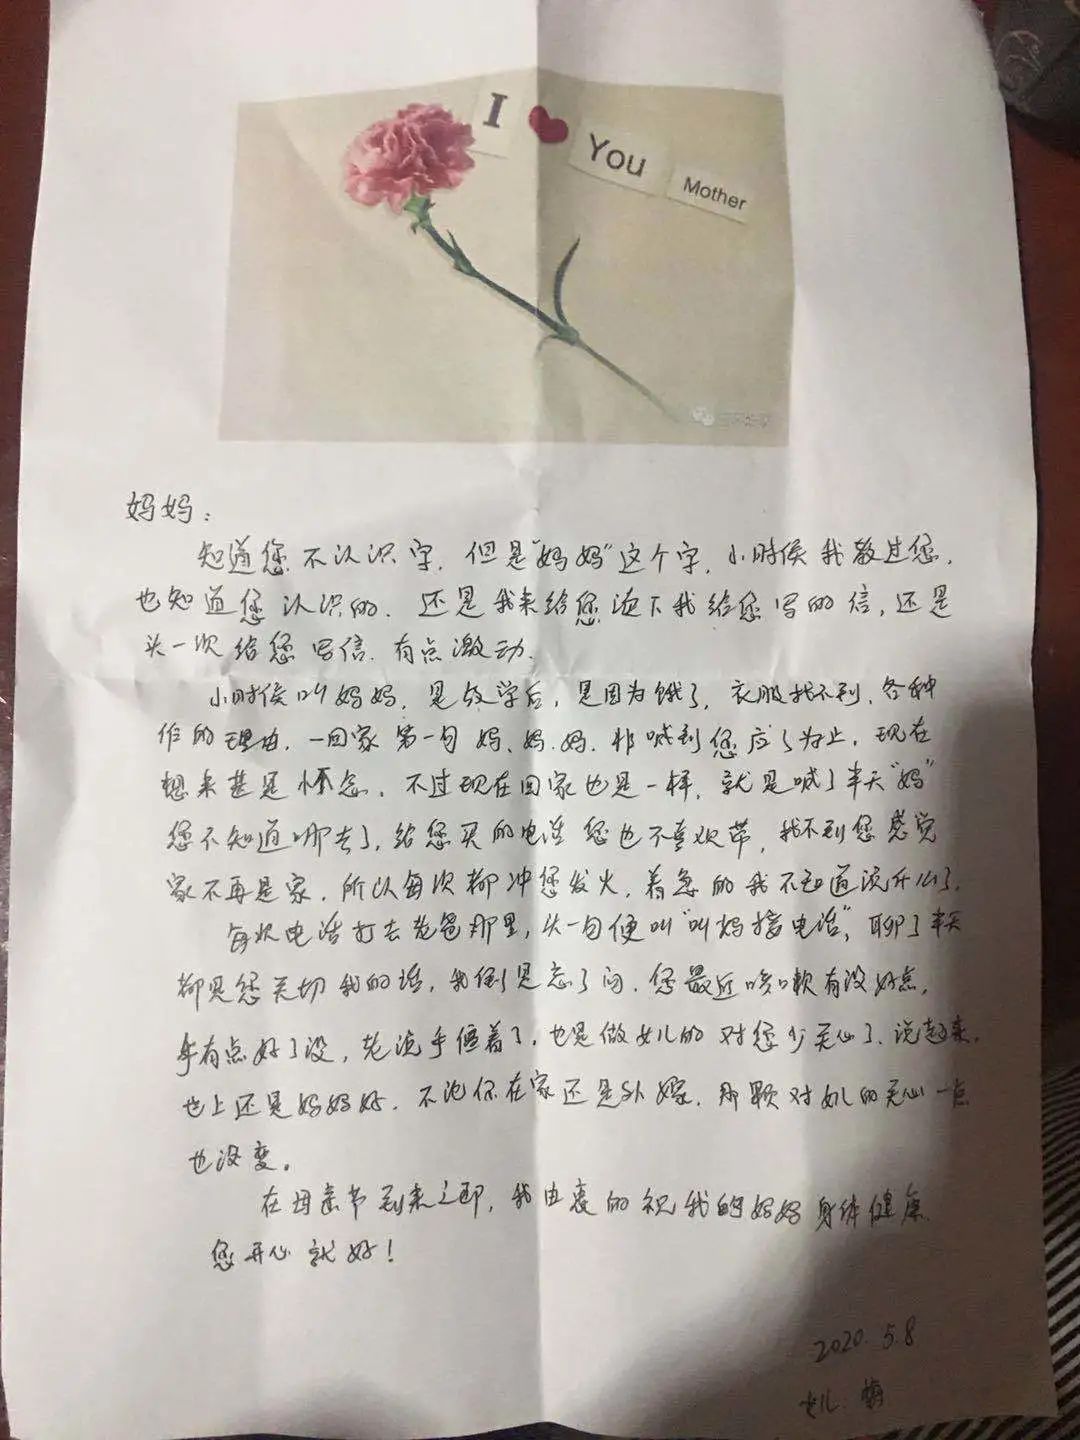 I ❤ You Mother
妈妈：
知道您不认识字，但是"妈妈"这个字，小时候我教过您，
也知道您认识的，还是我来给您读下我给您写的信，还是
头一次给您写信，有点激动。
小时候叫妈妈，是放学后，是因为饿了，衣服找不到，各种
作的理由，一回家第一句妈、妈、妈，非喊到您应了为止，现在
想来甚是怀念。不过现在回家也是一样，就是喊了半天"妈"
您不知道哪去了，给您买的电话您也不喜欢带，找不到您感觉
家不再是家，所以每次都冲您发火，着急的我不知道说什么了。
每次电话打去老爸那里，头一句便叫"叫妈接电话"，聊了半天
都是您关切我的话，我倒是忘了问，您最近咳嗽有没好点，
有点好了没，老说手僵着了，也是做女儿的对您少关心了，说起来，
世上还是妈妈好，不论你在家还是外嫁，那颗对女儿的关心一点
也没变。
在母亲节到来之即，我由衷的祝我的妈妈身体健康
您开心就好！
2020.5.8
女儿：